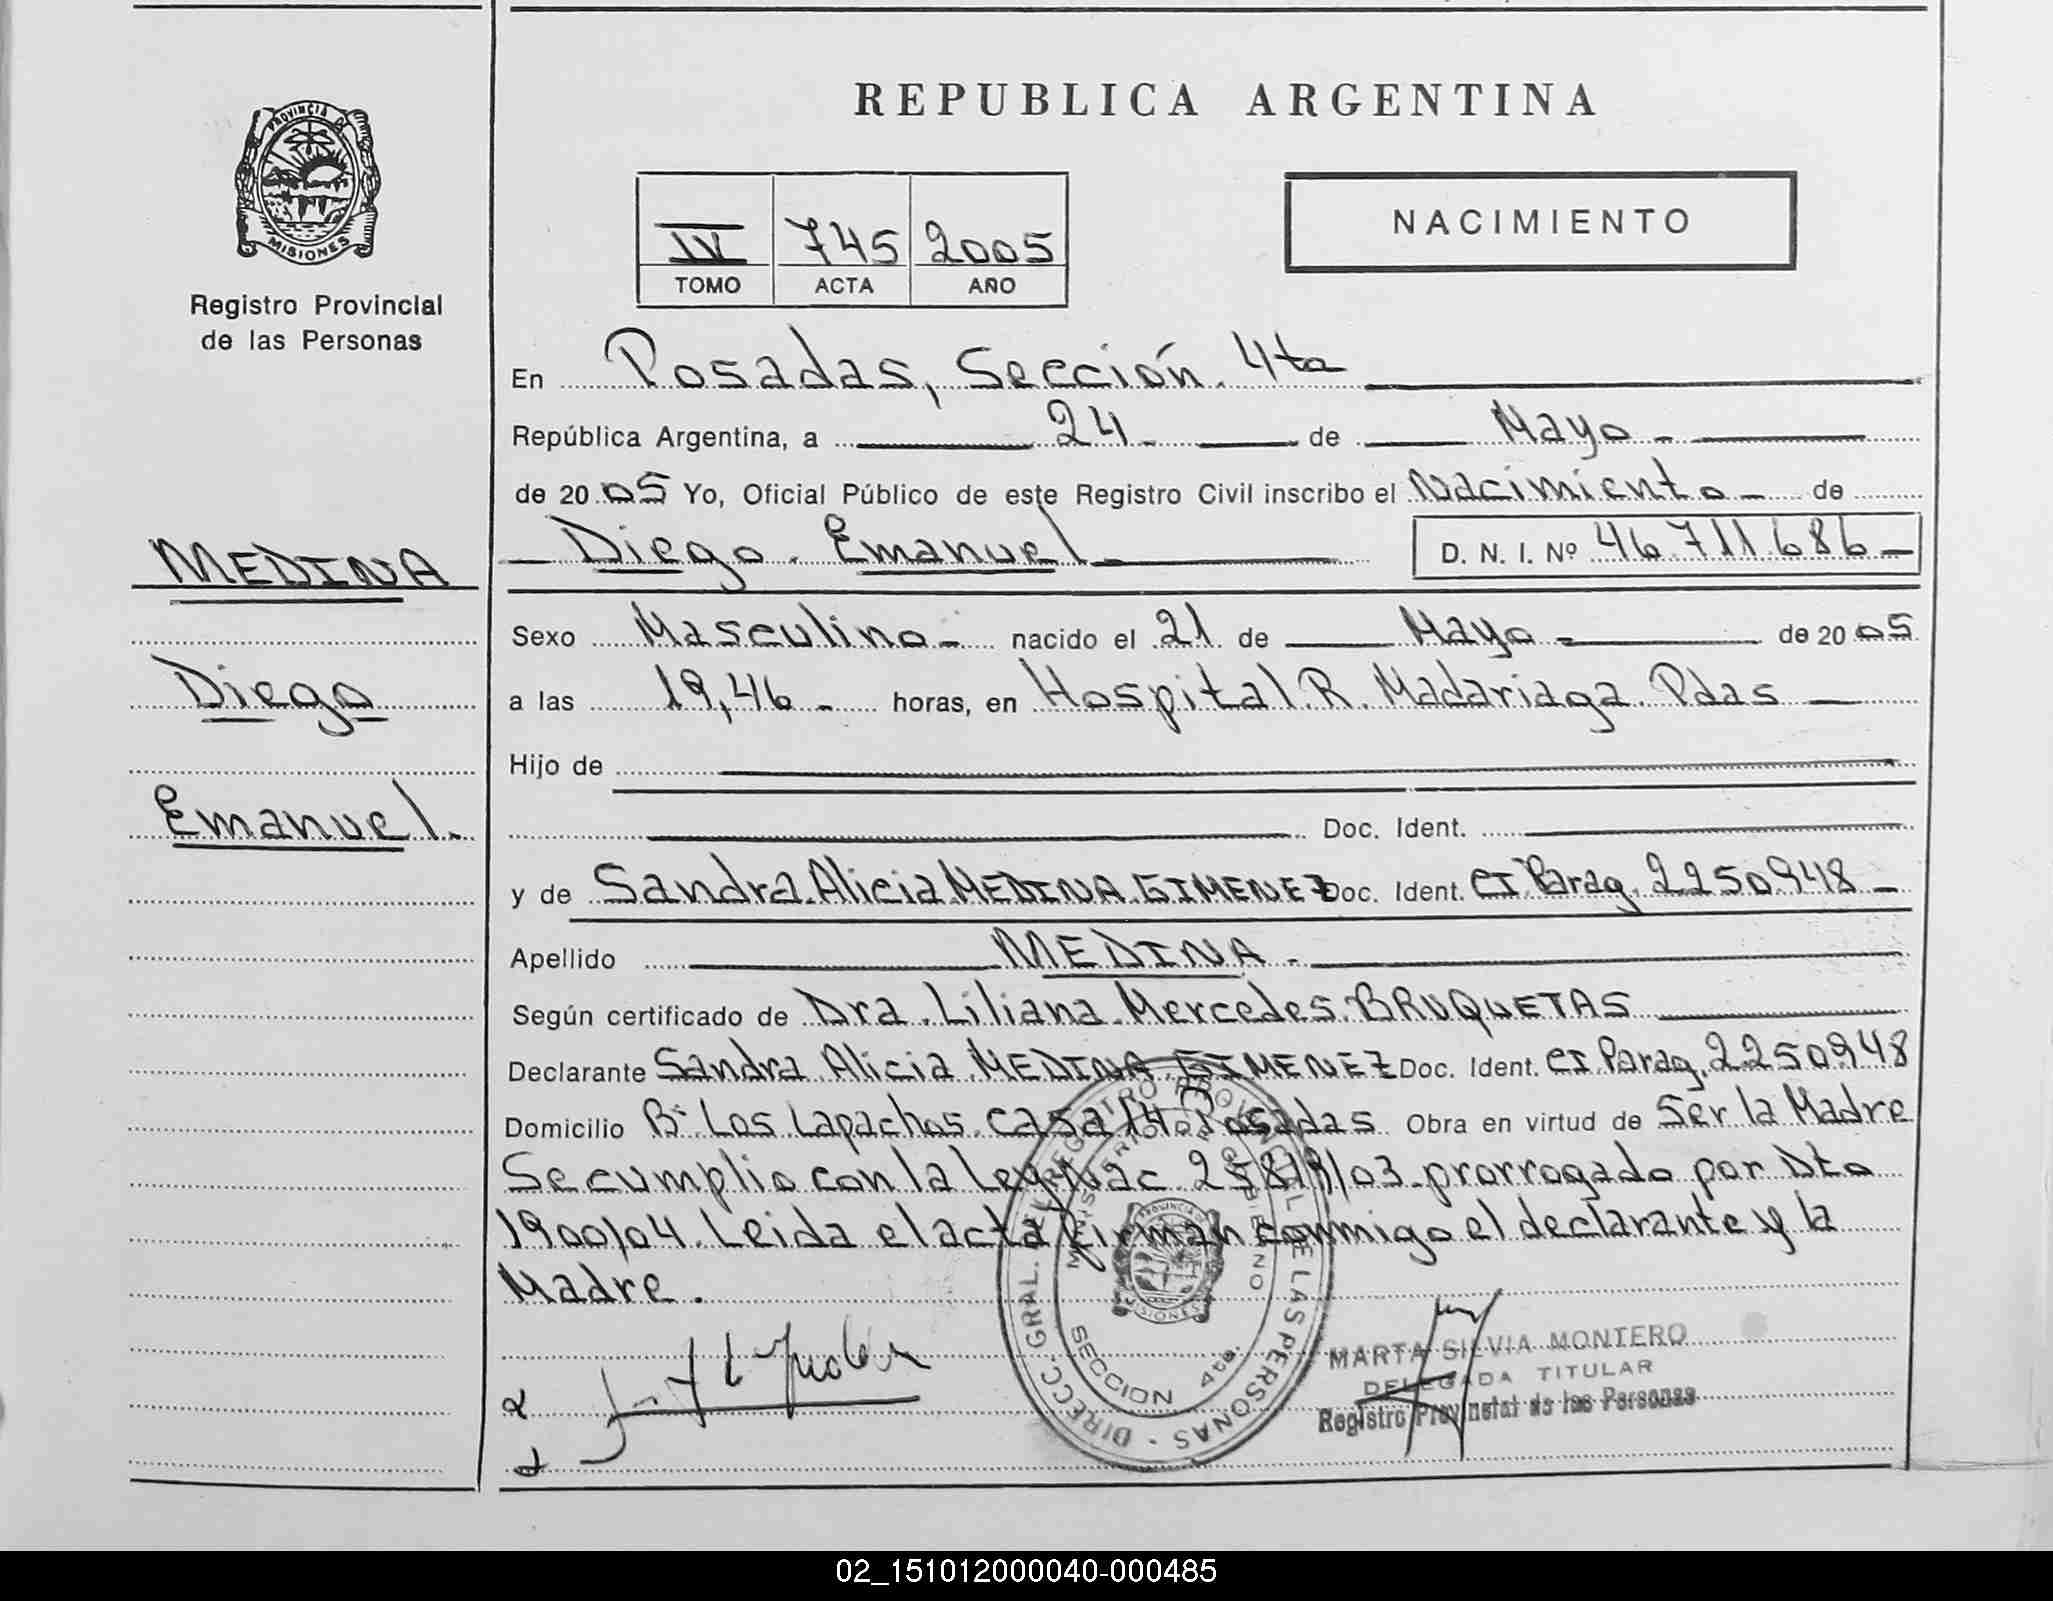 REPUBLICA ARGENTINA
PROVINCIA DE
MISIONES
Registro Provincial
de las Personas
IV 745 2005
TOMO ACTA AÑO
NACIMIENTO
En Posadas, Sección 4ta
República Argentina, a 24 de Mayo
de 2005 Yo, Oficial Público de este Registro Civil inscribo el Nacimiento de
Diego Emanuel D. N. I. Nº 46.711.686
MEDINA
Diego
Emanuel.
Sexo Masculino nacido el 21 de Mayo de 2005
a las 19,46 horas, en Hospital R. Madariaga Pdas
Hijo de
Doc. Ident.
y de Sandra Alicia MEDINA GIMENEZ Doc. Ident. CI Parag. 2250948
Apellido MEDINA
Según certificado de Dra. Liliana Mercedes BRUQUETAS
Declarante Sandra Alicia MEDINA GIMENEZ Doc. Ident. CI Parag. 2250948
Domicilio Bº Los Lapachos casa 14 Posadas Obra en virtud de Ser la Madre
Se cumplio con la Ley Nac 25819/03 prorrogado por Dto
1900/04. Leida el acta firman conmigo el declarante y la
Madre.
DIRECC. GRAL. DEL REGISTRO PROVINCIAL DE LAS PERSONAS
MINISTERIO DE GOBIERNO
SECCION 4ta.
MISIONES
MARTA SILVIA MONTERO
DELEGADA TITULAR
Registro Provincial de las Personas
02_151012000040-000485